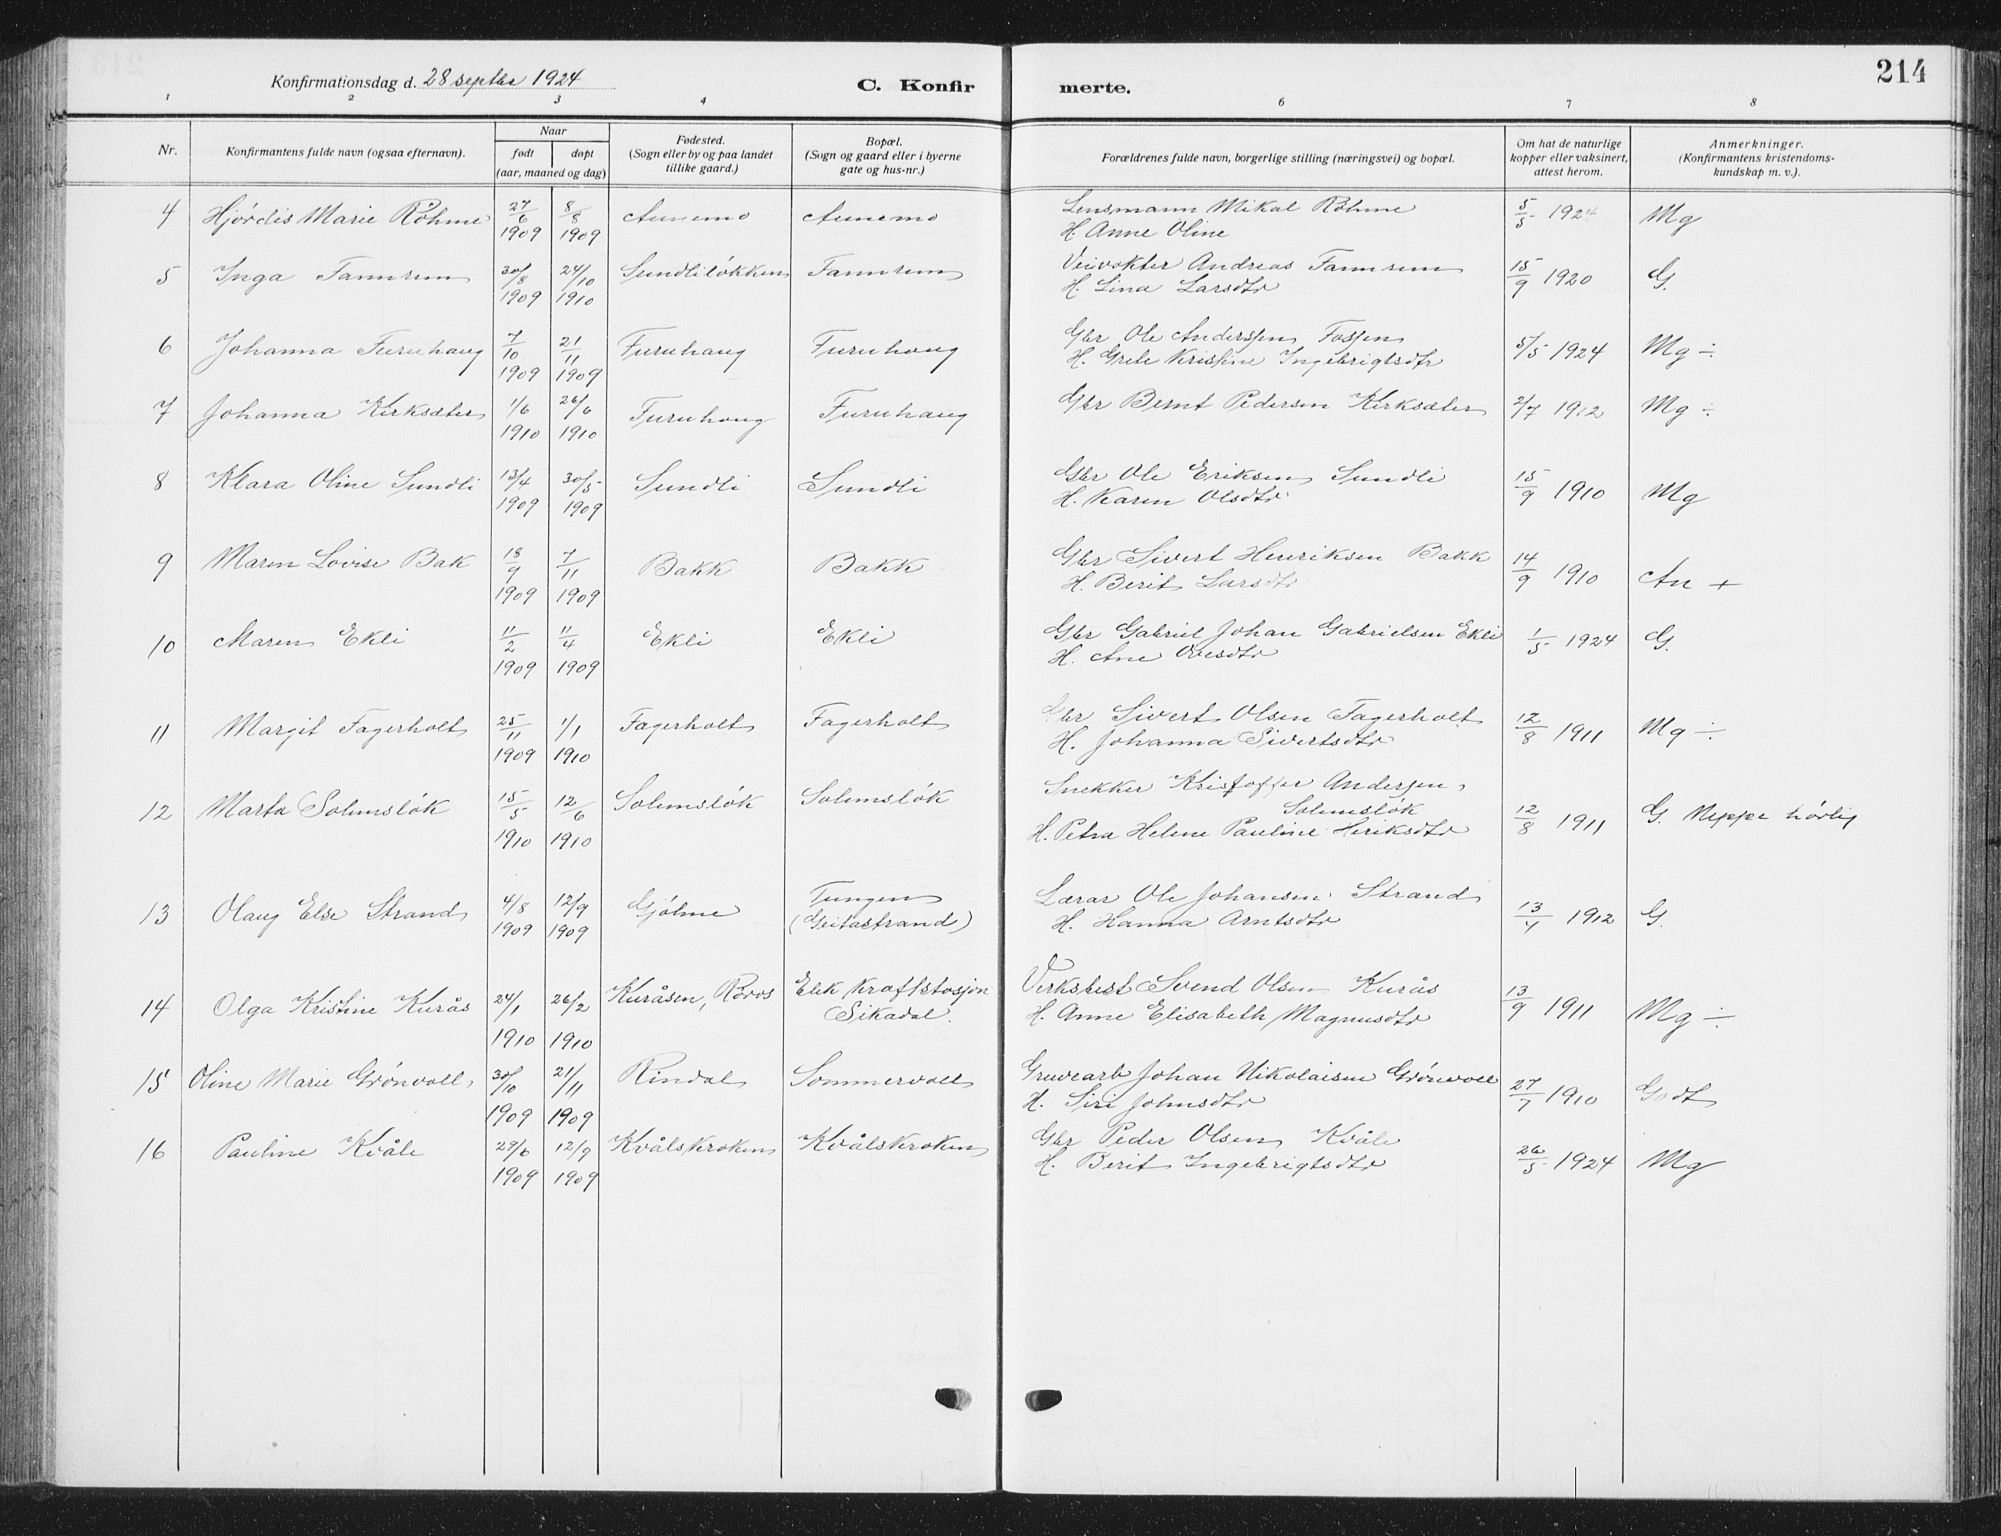 214
Konfirmationsdag d. 28 septbr 1924
C. Konfirmerte.
1 2 3 4 6 7 8
Nr.
Konfirmantens fulde navn (ogsaa efternavn).
Naar
født døpt
(aar, maaned og dag)
Fødested.
(Sogn eller by og paa landet
tillike gaard.)
Bopæl.
(Sogn og gaard eller i byerne
gate og hus-nr.)
Forældrenes fulde navn, borgerlige stilling (næringsvei) og bopæl.
Om hat de naturlige
kopper eller vaksinert,
attest herom.
Anmerkninger.
(Konfirmantens kristendoms-
kundskap m. v.).
4 Hjørdis Marie Röhme 27/6 1909 8/8 1909 Aunemo Aunemo Lensmann Mikal Röhme 5/5 1924 Mg
H. Anne Oline
5 Inga Fannrem 30/8 1909 24/10 1910 Sundliløkken Fannrem Veivokter Andreas Fannrem 15/9 1920 G.
H. Lina Larsdtr
6 Johanna Furuhaug 7/10 1909 21/11 1909 Furuhaug Furuhaug Gbr Ole Anderssen Fossen 5/5 1924 Mg ÷
H. Grete Kristine Ingebrigtsdtr
7 Johanna Kirksæter 1/6 1910 26/6 1910 Furuhaug Furuhaug Gbr Bernt Pedersen Kirksæter 2/7 1912 Mg ÷
8 Klara Oline Sundli 13/4 1909 30/5 1909 Sundli Sundli Gbr Ole Eriksen Sundli 15/9 1910 Mg
H. Karen Olsdtr
9 Maren Lovise Bak 18/9 1909 7/11 1909 Bakk Bakk Gbr Sivert Henriksen Bakk 14/9 1910 An +
H. Berit Larsdtr
10 Maren Ekli 11/2 1909 11/4 1909 Ekli Ekli Gbr Gabriel Johan Gabrielsen Ekli 1/5 1924 G.
H. Ane
11 Margit Fagerholt 25/11 1909 1/1 1910 Fagerholt Fagerholt Gbr Sivert Olsen Fagerholt 12/8 1911 Mg ÷
H. Johanna Sivertsdtr
12 Marta Solumsløk 15/5 1910 12/6 1910 Solumsløk Solumsløk Snekker Kristoffer Andersen,
Solumsløk 12/8 1911 G. Neppe hørlig
H. Petra Helene Pauline Heriksdtr
13 Olaug Else Strand 4/8 1909 12/9 1909 Gjølme Tungen Lærar Ole Johansen Strand 13/4 1912 G.
(Geitastrand) H. Hanna Arntsdtr
14 Olga Kristine Kurås 24/1 1910 26/2 1910 Kuråsen, Röros Elek kraftstasjon Verksbest Svend Olsen Kurås 13/9 1911 Mg ÷
Sikadal. H. Anne Elisabeth Magnusdtr
15 Oline Marie Grønvoll 30/10 1909 21/11 1909 Rindal Sommervoll Gruvearb Johan Nikolaisen Grønvoll 27/7 1910 Godt
H. Siri Johnsdtr
16 Pauline Kvåle 29/6 1909 12/9 1909 Kvålskroken Kvålskroken Gbr Peder Olsen Kvåle 26/5 1924 Mg
H. Berit Ingebrigtsdtr